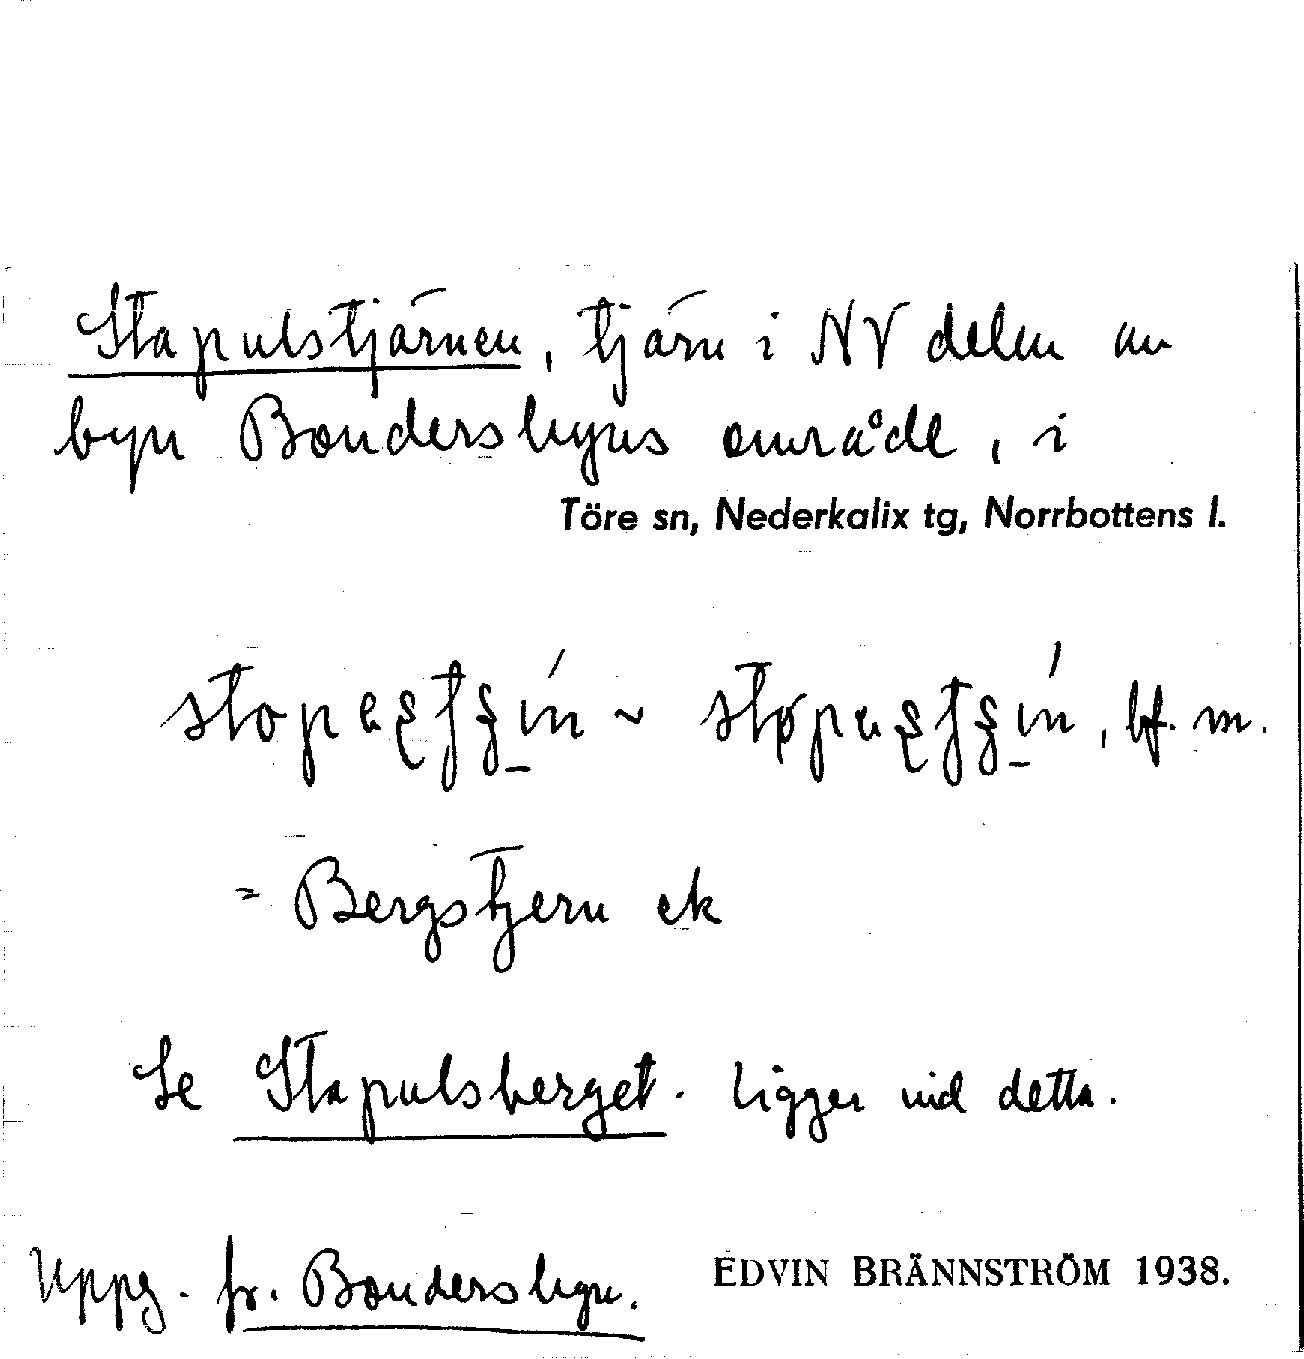 Stapulstjärnen, tjärn i NV delen av
byn Bondersbyns område, i
Töre sn, Nederkalix tg, Norrbottens l.
bf. m.
= Bergstjern ek
Se Stapulsberget. Ligger vid detta.
Uppg. fr. Bondersbyn. EDVIN BRÄNNSTRÖM 1938.